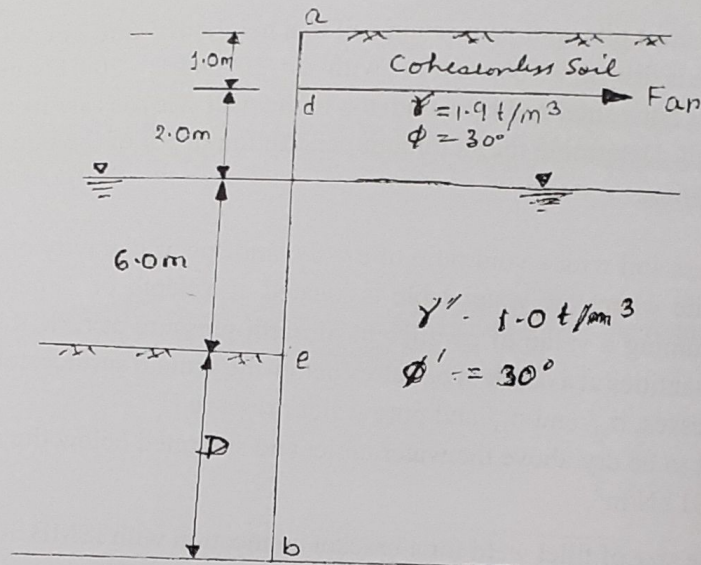 a
1.0m
Cohesionless Soil
d
Fan
γ = 1.9 t/m³
2.0m
φ = 30°
6.0m
γ'' - 1.0 t/m³
φ' -= 30°
e
D
b